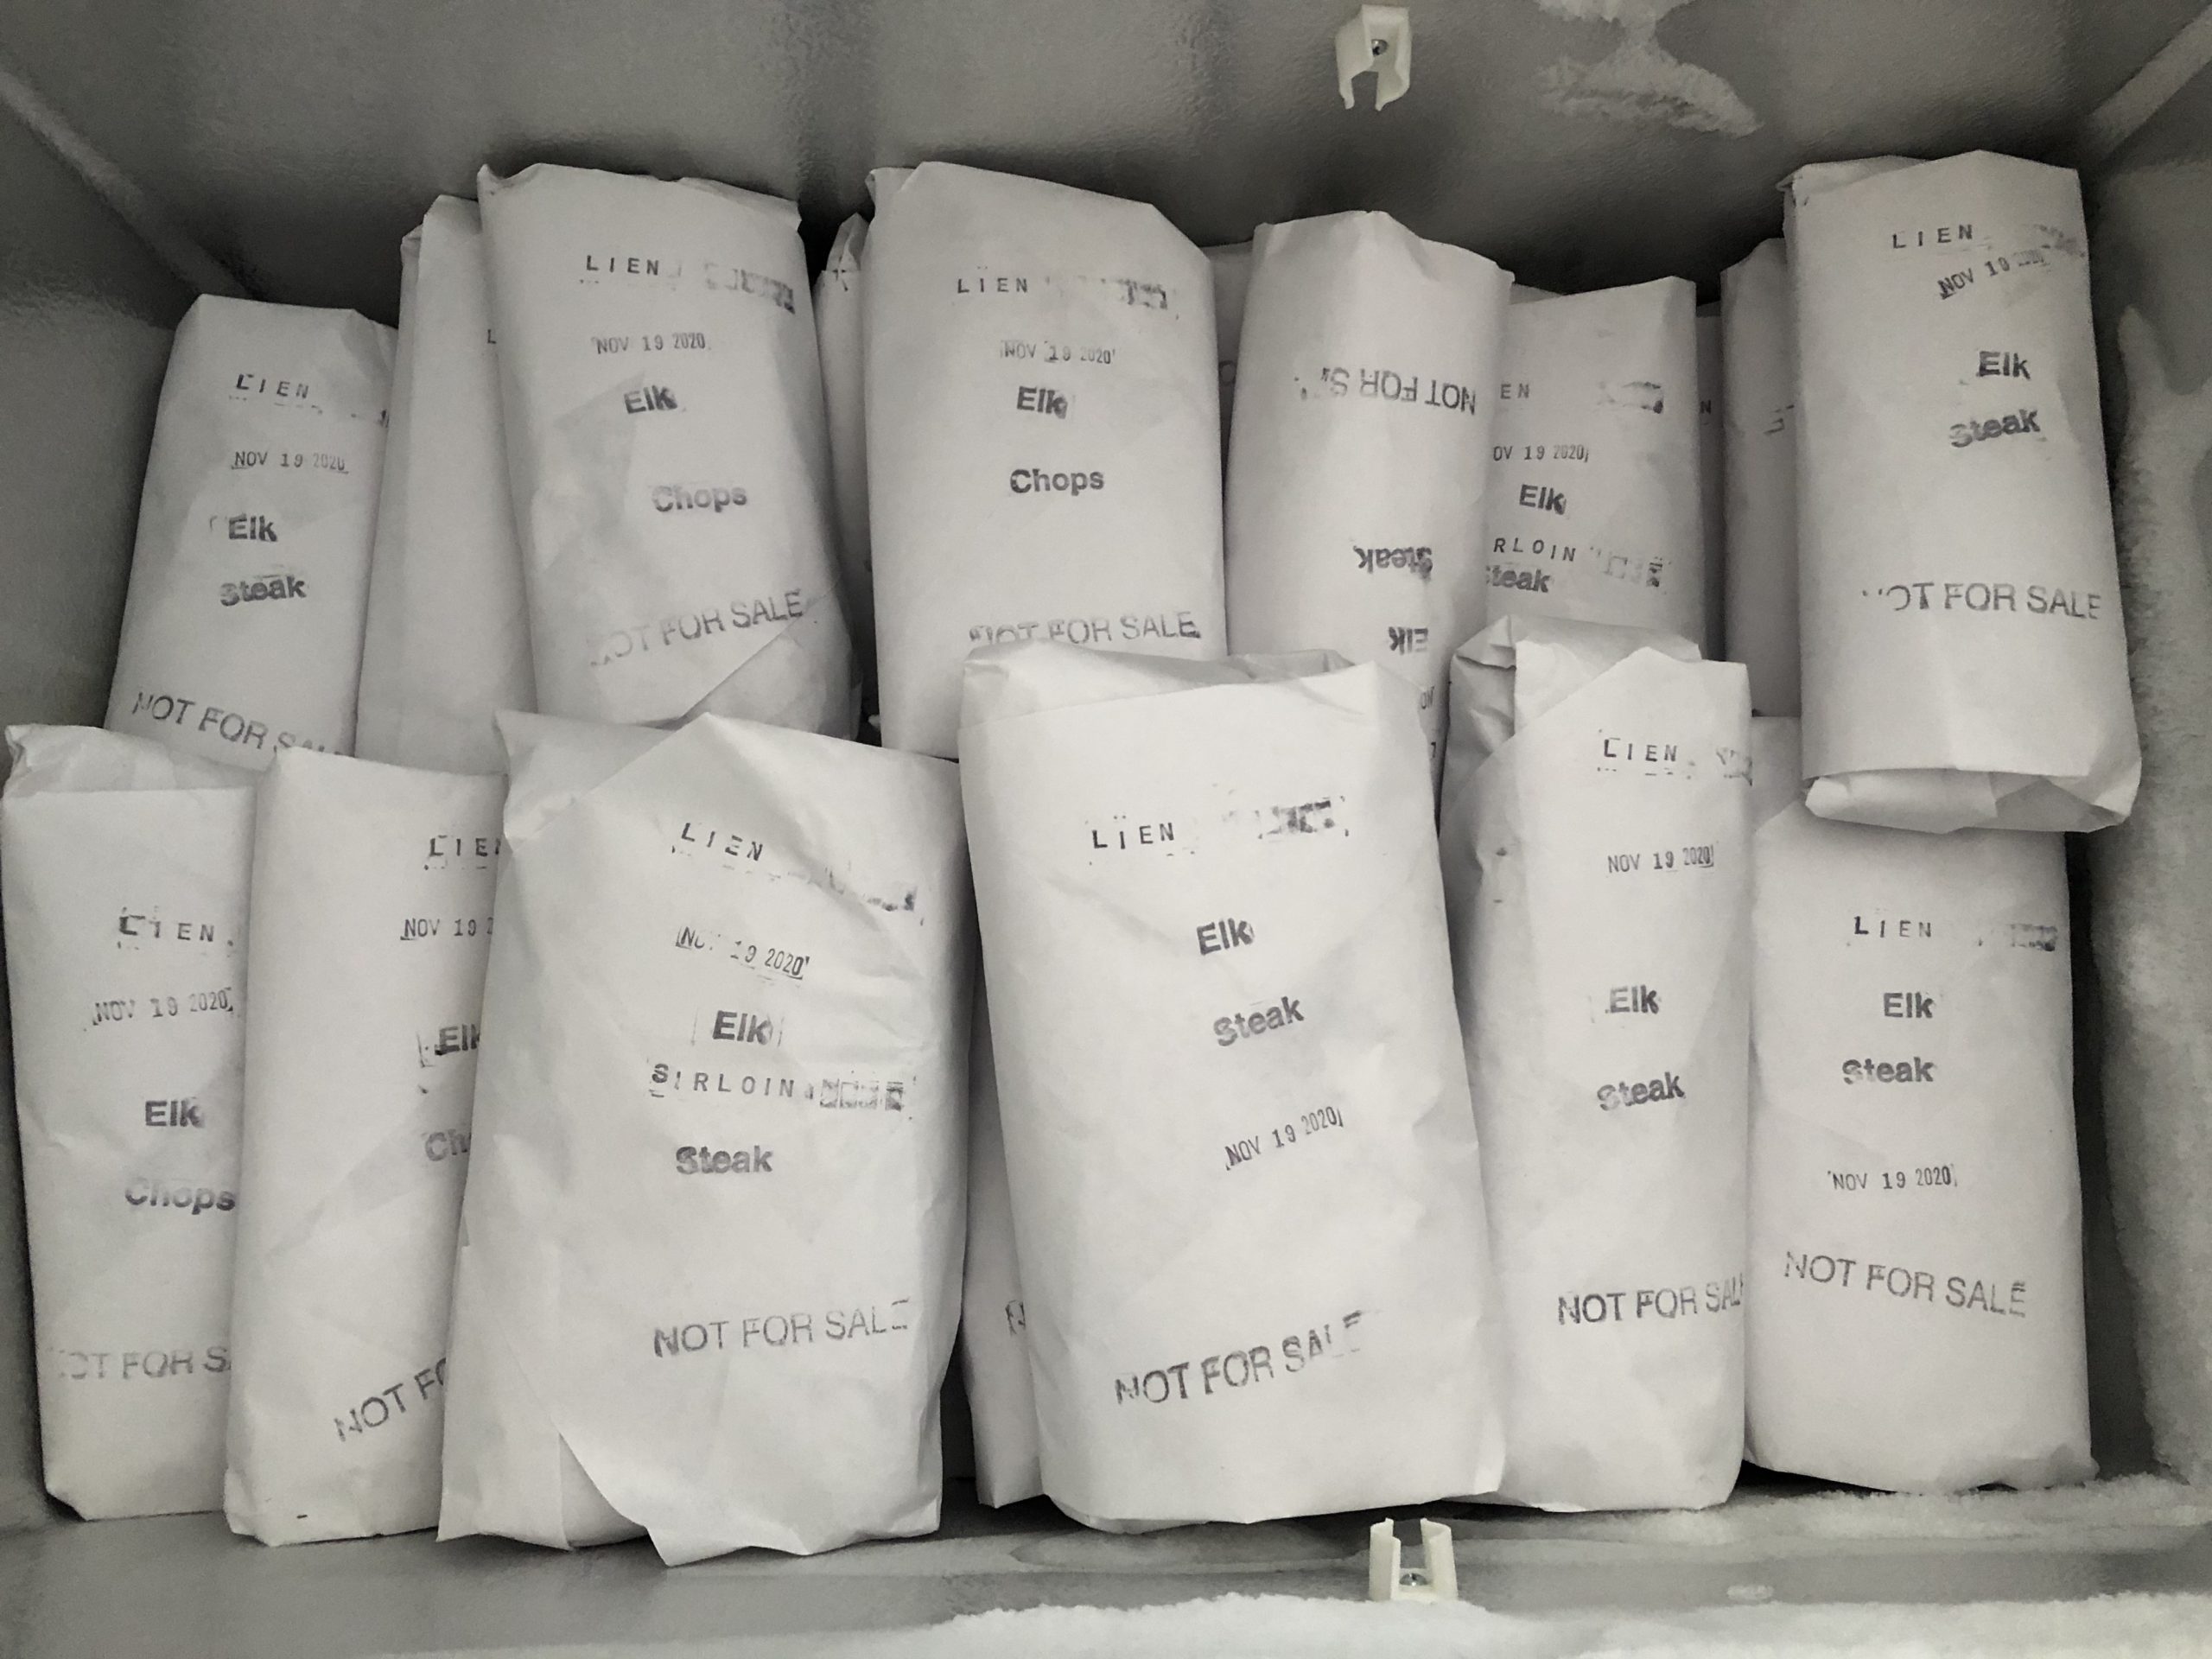 LIEN
NOV 19 2020
Elk
Steak
NOT FOR SALE
LIEN
NOV 19 2020
Elk
Chops
NOT FOR SALE
LIEN
NOV 19 2020
Elk
Chops
NOT FOR SALE
NOT FOR S
Steak
Elk
EN
OV 19 2020
Elk
RLOIN
Steak
LIEN
NOV 19
Elk
Steak
OT FOR SALE
LIEN
NOV 19 2020
Elk
Chops
OT FOR S
LIEN
NOV 19 2
Elk
Ch
NOT FO
LIEN
NOV 19 2020
Elk
SIRLOIN
Steak
NOT FOR SALE
LIEN
Elk
Steak
NOV 19 2020
NOT FOR SALE
LIEN
NOV 19 2020
Elk
Steak
NOT FOR SAL
LIEN
Elk
Steak
NOV 19 2020
NOT FOR SALE